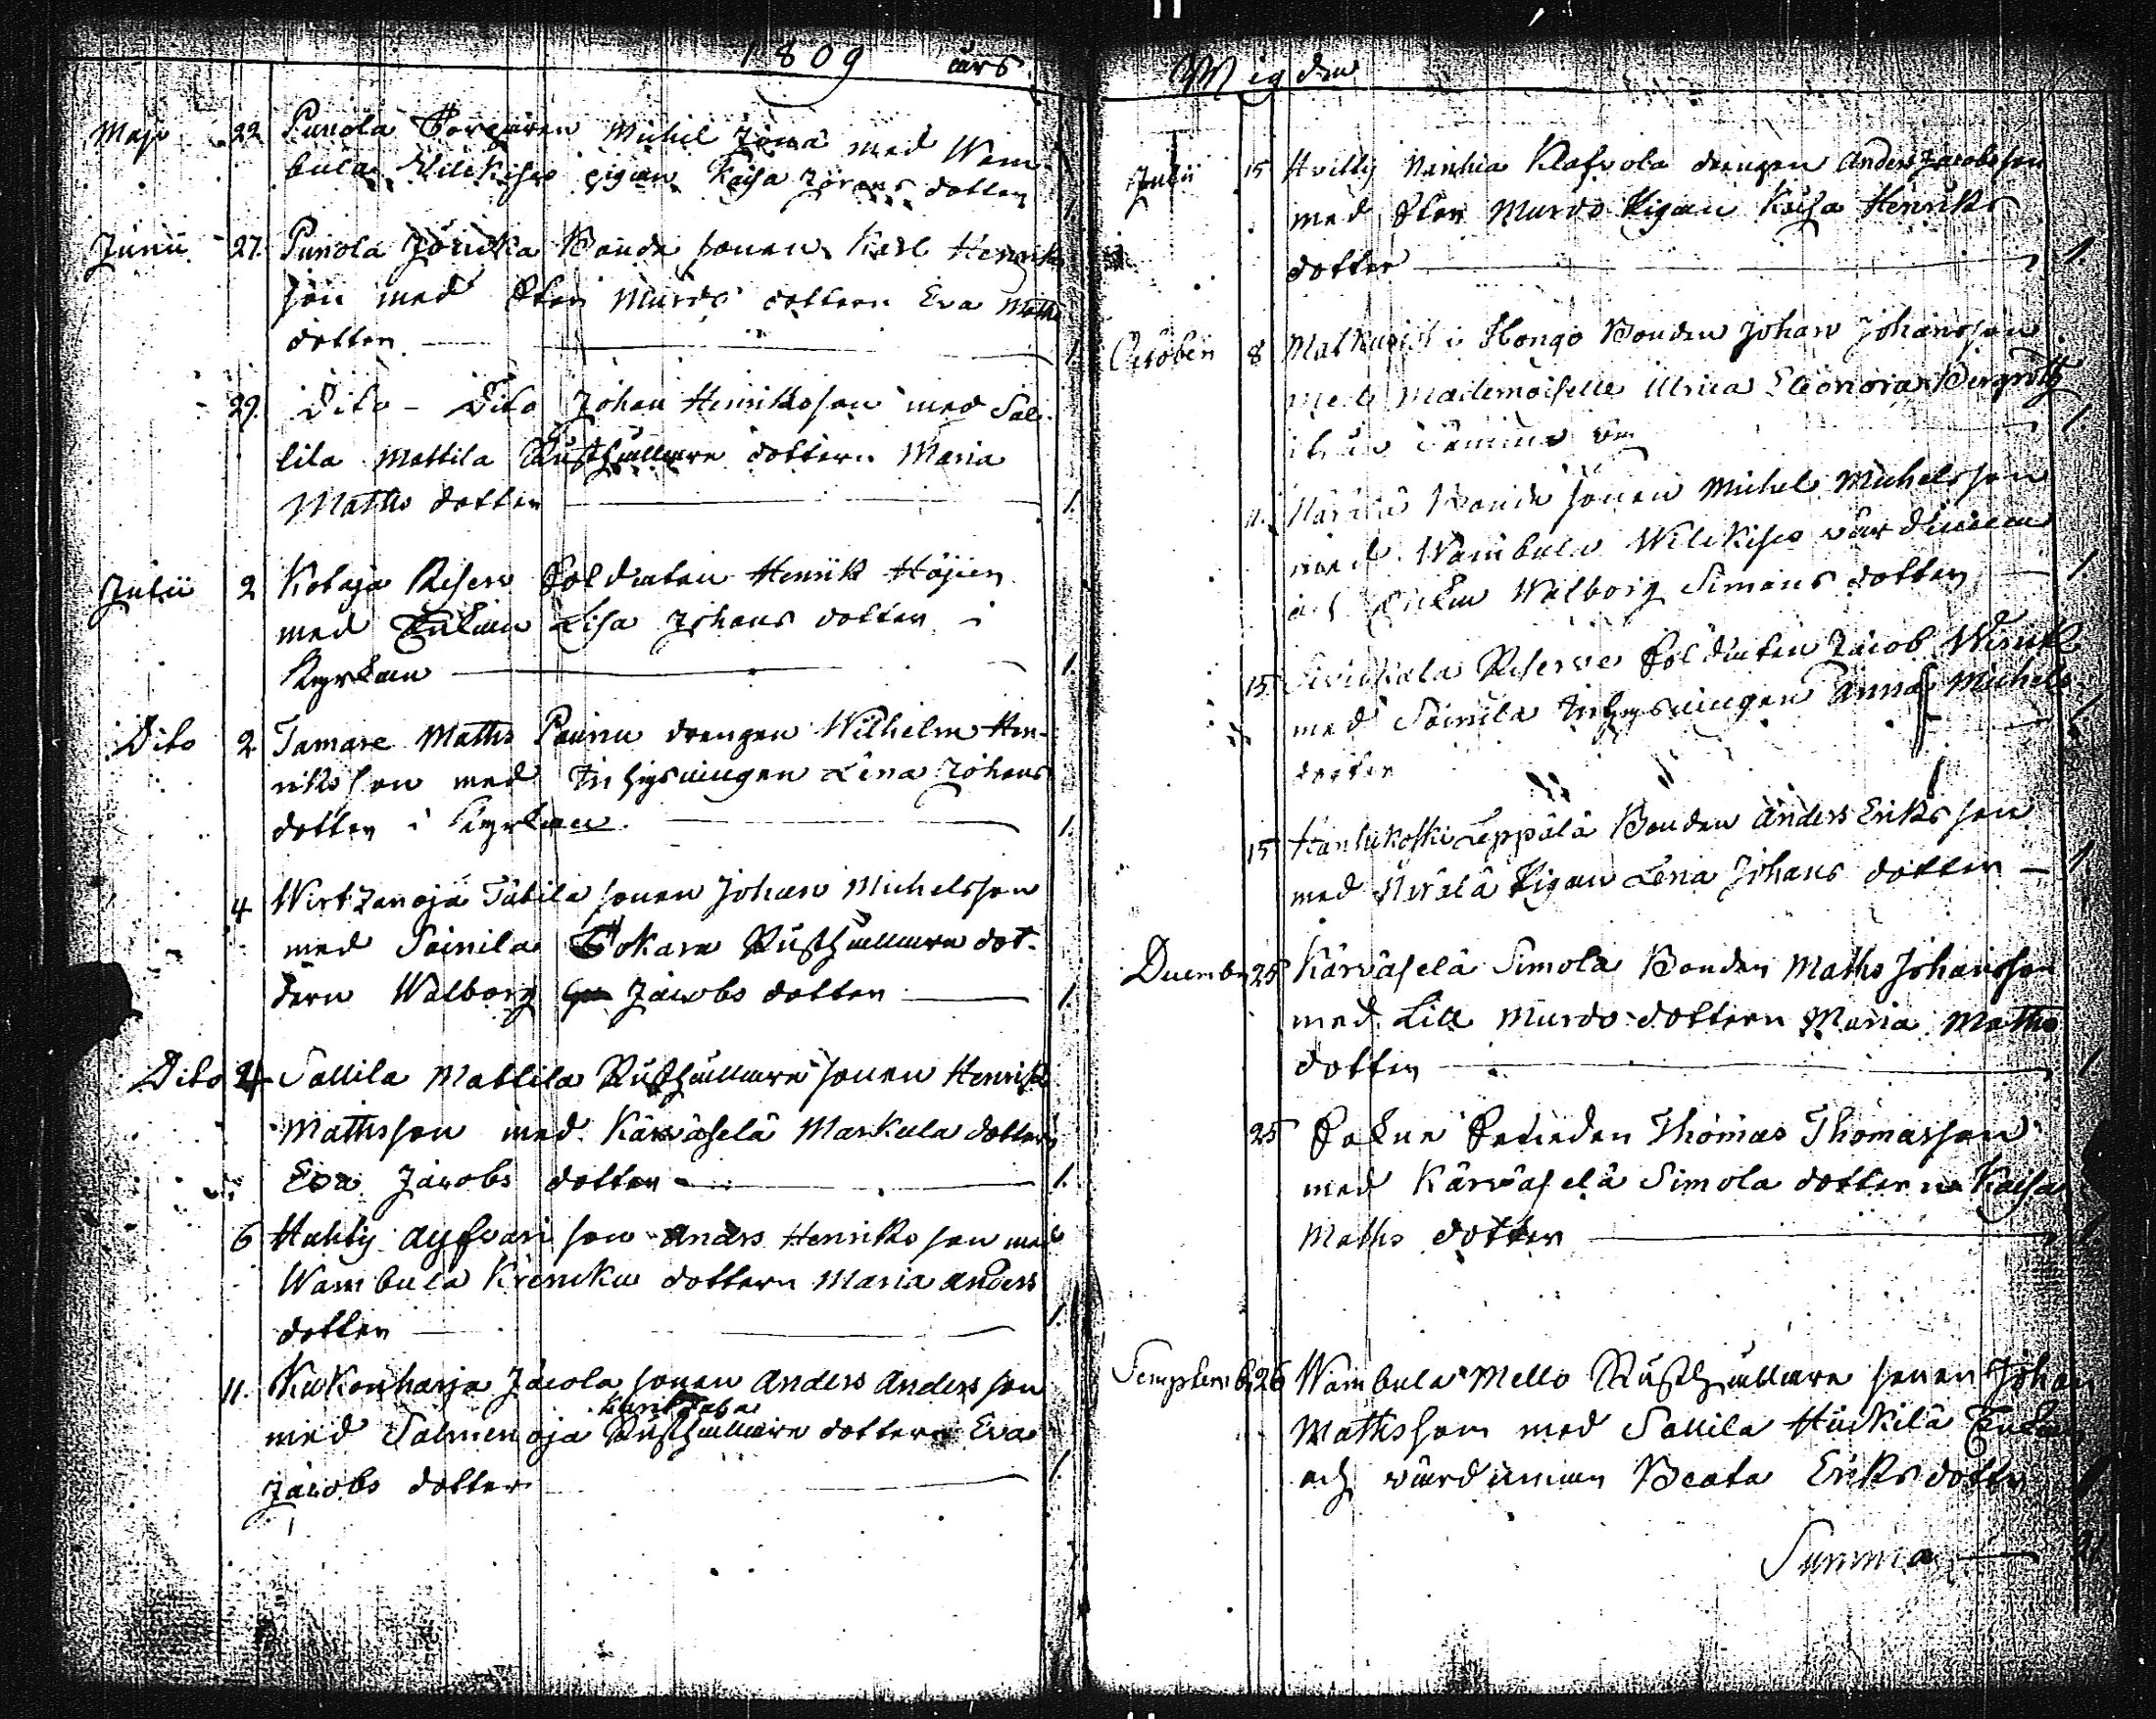 1809 års
Maji 22 Punola Torparen Michel Jöran med Wam-
bula Wilckises pigan Kaisa Jörans dotter
Junii 27. Punola Jöricka Bonde sonen Karl Henriks
son med Stor Murdo dottern Eva Matts
dotter 1.
29. Dito - Dito Johan Henriksson med Sal-
lila Mattila Rusthållare dottern Maria
Matts dotter 1.
Julii 2 Kotaja Reserv Soldaten Henrik Höjien
med Enkan Lisa Johans dotter i
Kyrkan 1.
Dito 2 Tamare Matts Paunu drengen Wilhelm Hen-
riksson med Inhysningen Lena Johans
dotter i Kyrkan. 1.
4 Wirtzanoja Tabila sonen Johan Michelsson
med Soinila Tokare Rusthållare dot-
tern Walborg Jacobs dotter 1.
Dito 4 Sallila Mattila Rusthållare sonen Henrik
Mattsson med Kärväselä Markula dottern
Eva Jacobs dotter 1.
6 Huhti son Anders Henriksson med
Wambula dottern Maria Anders
dotter 1.
11. Kukonharja Jacola sonen Anders Andersson
med Salmenoja Rusthållare dottern Eva
Jacobs dotter 1.
Wigden
Julii 15 drengen Anders Jacobsson
med Stor Murdo Pigan Kaisa Henriks
dotter 1
October 8 Hongo Bonden Johan Johansson
med Mademoiselle Ulrica Eleonora Bergroth
1
11. Bonde sonen Michel Michelsson
med Wambula Wilckises värdinnan
och Enkan Walborg Simons dotter 1.
15. Reserve Soldaten Jacob
med Soinila Inhysningen Anna Michels
dotter
15 Leppälä Bonden Anders Eriksson
med Pigan Lena Johans dotter 1.
Decembr 25 Kärväselä Simola Bonden Matts Johansson
med Lill Murdo dottern Maria Matts
dotter 1
25 Thomas Thomasson
med Kärväselä Simola dottern Kaisa
Matts dotter
Septembr 26 Wambula Mello Rusthållare sonen Johan
Mattsson med Sallila Enkan
och värdinnan Beata Eriks dotter
Summa